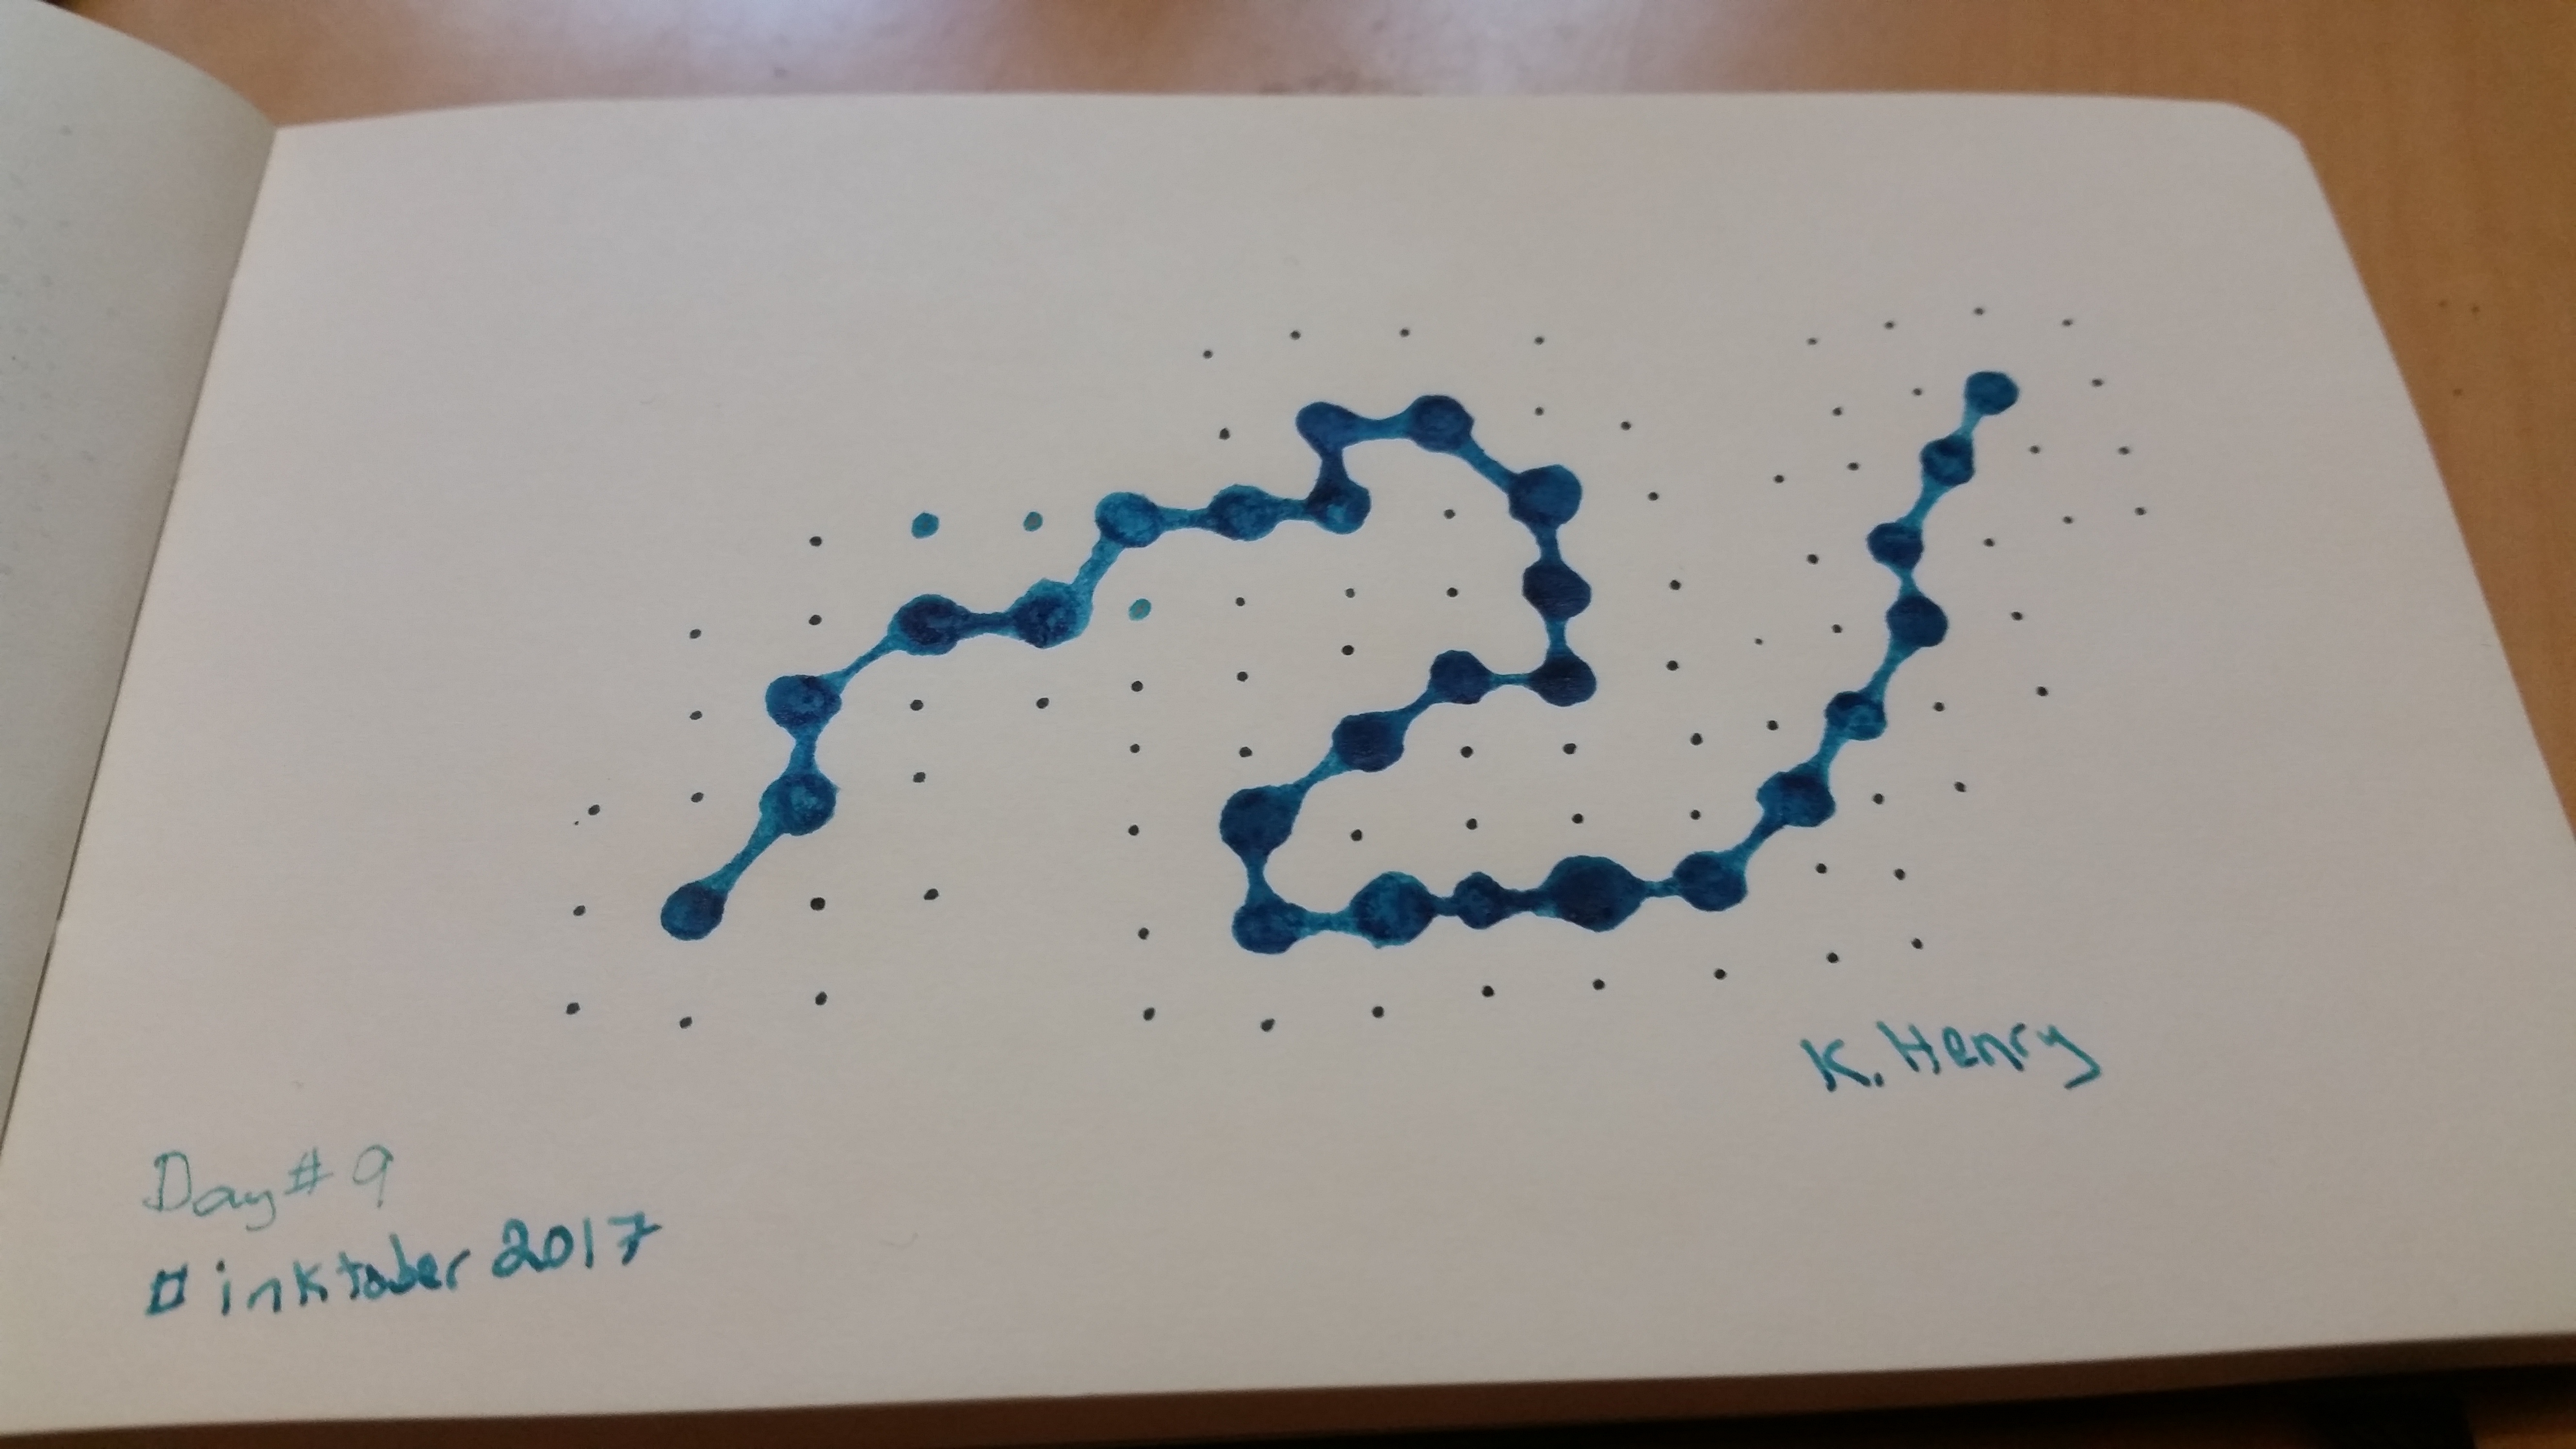 K. Henry
Day # 9
# inktober 2017